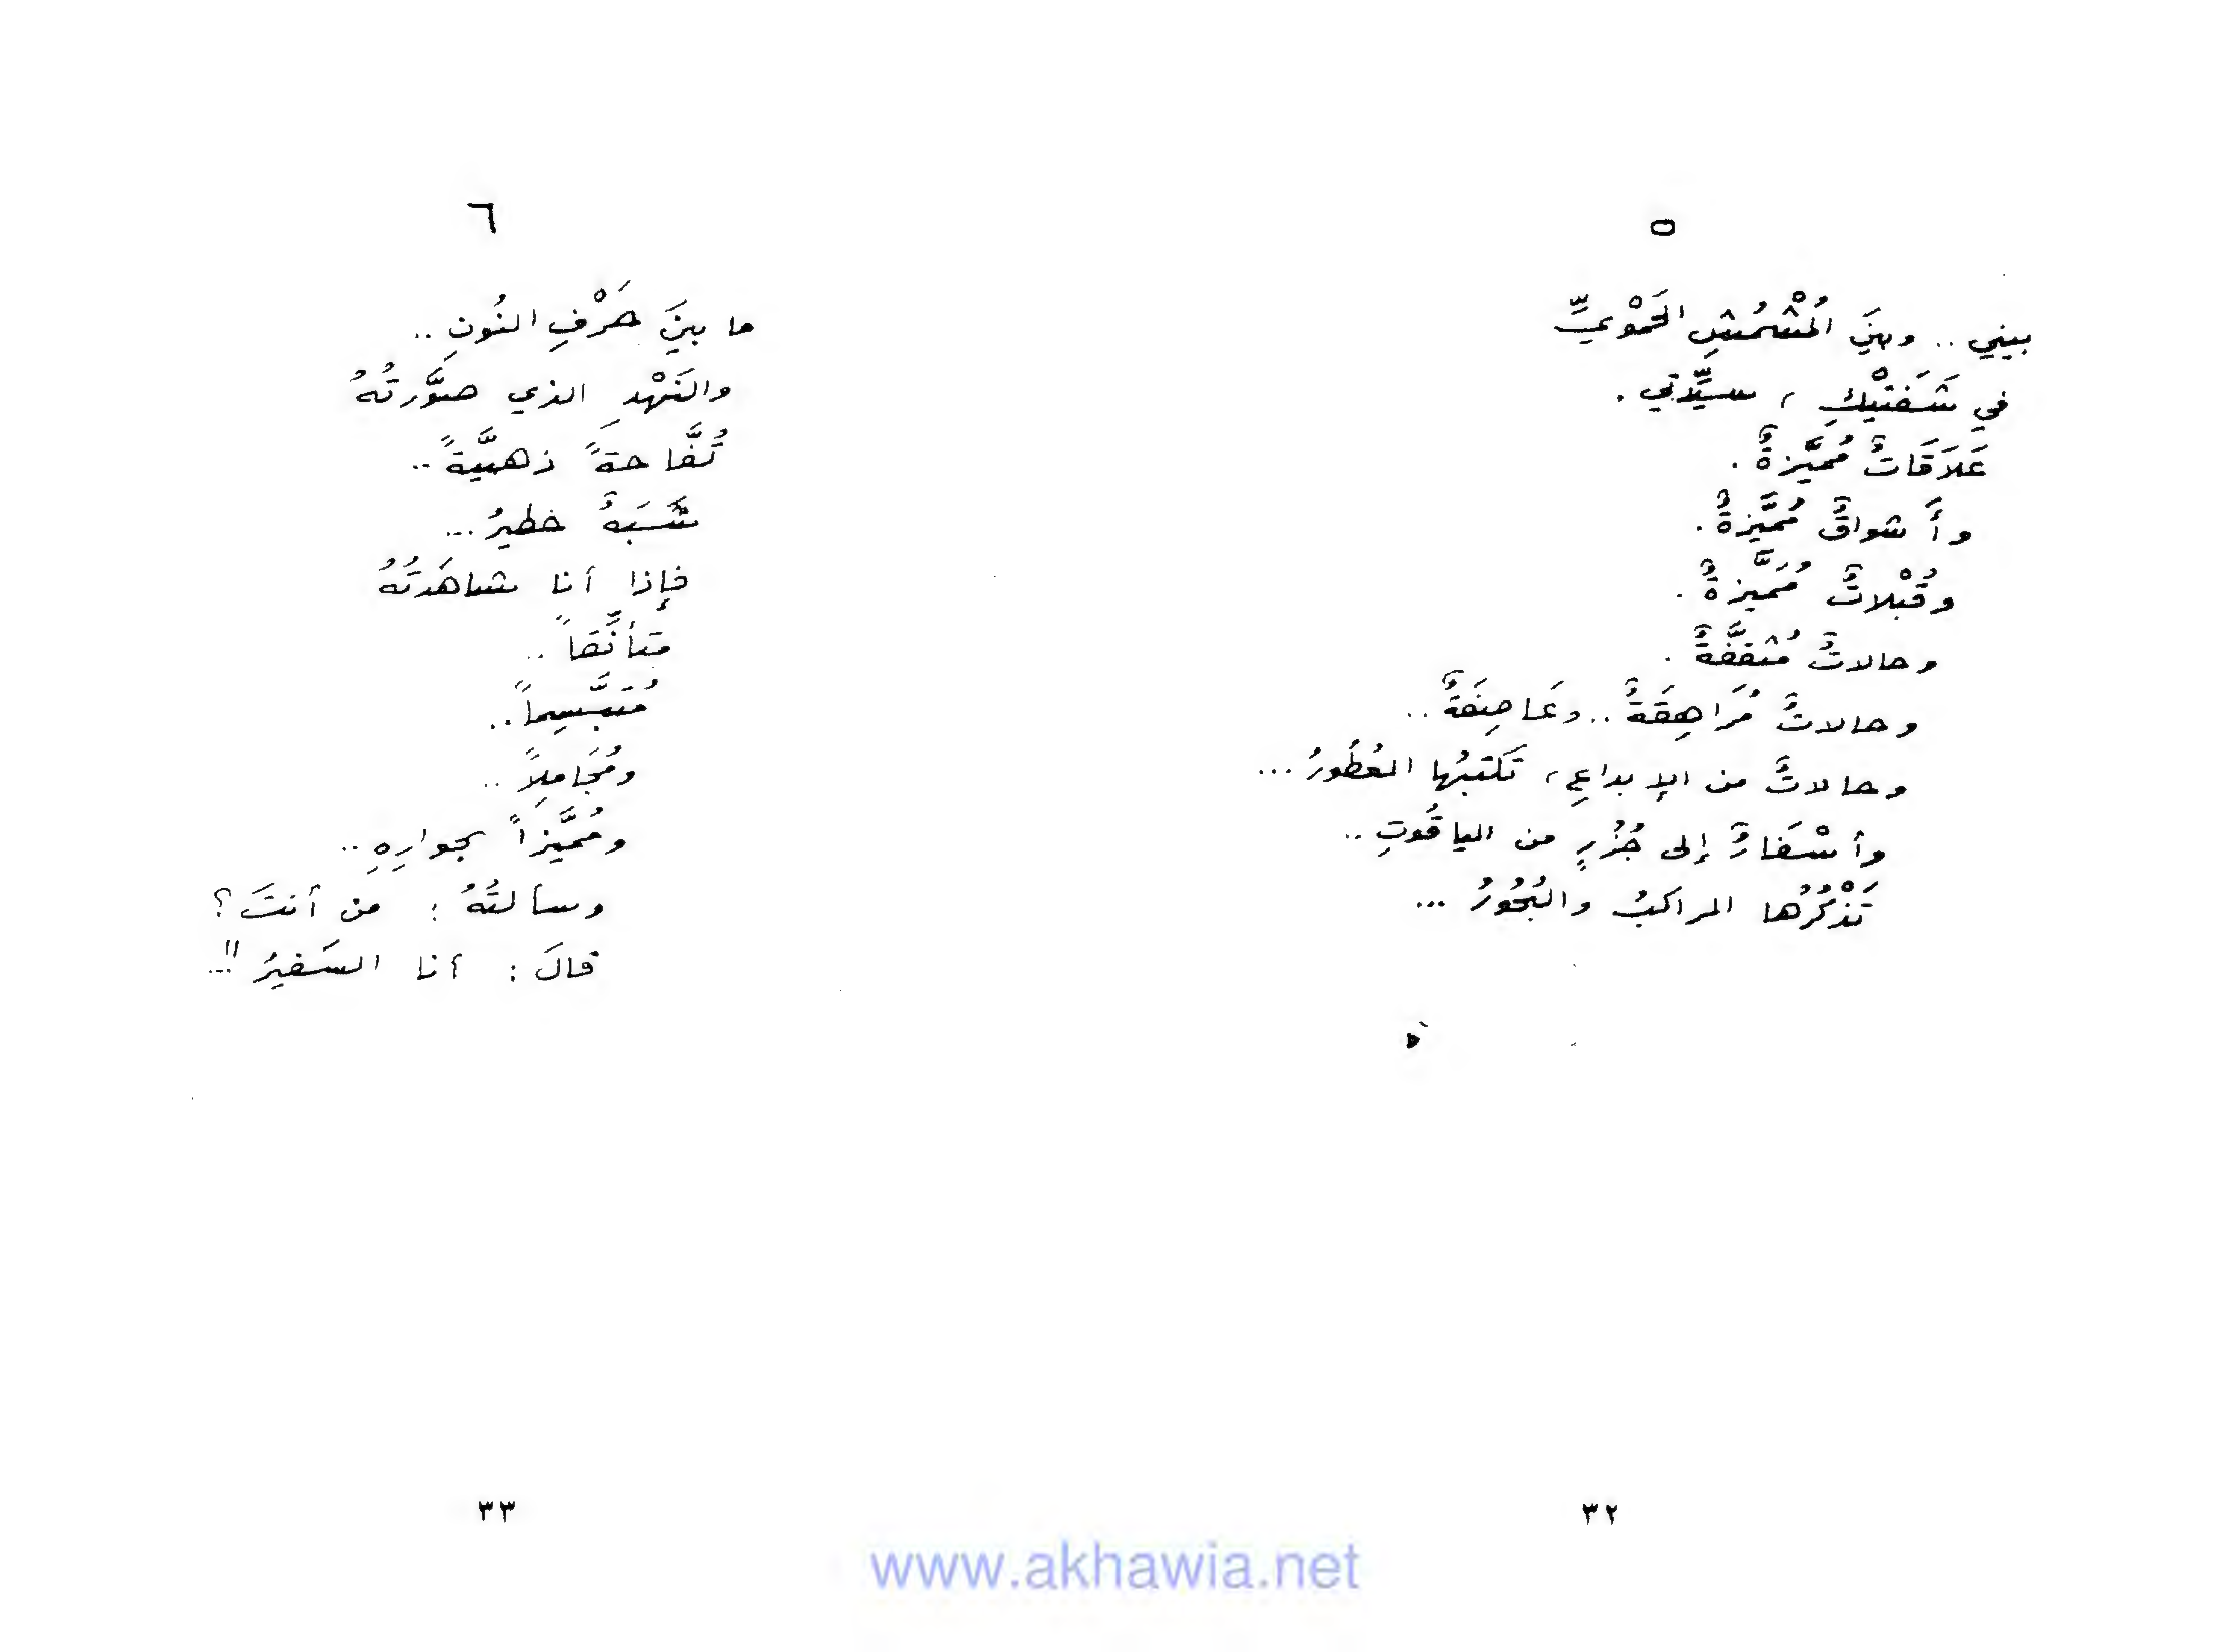 ٥
بيني .. وبينَ المُشْمُشِ الحَمْويِّ
في شَفَتَيْكِ ، سيِّدتي .
عَلاَقَاتٌ مُميَّزةٌ .
وأَشواقٌ مُميَّزةٌ .
وقُبْلاتٌ مُمَيَّزةٌ .
وحالاتٌ مُثقَّفةٌ .
وحالاتٌ مُرَاهِقَةٌ .. وعَاصِفَةٌ ..
وحالاتٌ من الإبداعِ ، تَكتبُها العُطُورُ ...
وأسْفَارٌ إلى جُزُرٍ من الياقُوتِ ..
تَذْكُرُها المراكبُ والبُحُورُ ...
٣٢
٦
ما بينَ حَرْفِ النُونِ ..
والنَهْدِ الذي صوَّرتُهُ
تُفَّاحةً ذهبيَّةً ..
شَبَهٌ خطيرُ ...
فإذا أنا شاهَدتُهُ
متأنِّقاً ..
مُتَبَسِّماً ..
ومُجَامِلاً ..
ومُميَّزاً بجوارِهِ ..
وسألتُهُ : من أنتَ ؟
قالَ : أنا السَفيرُ !!..
٣٣
www.akhawia.net